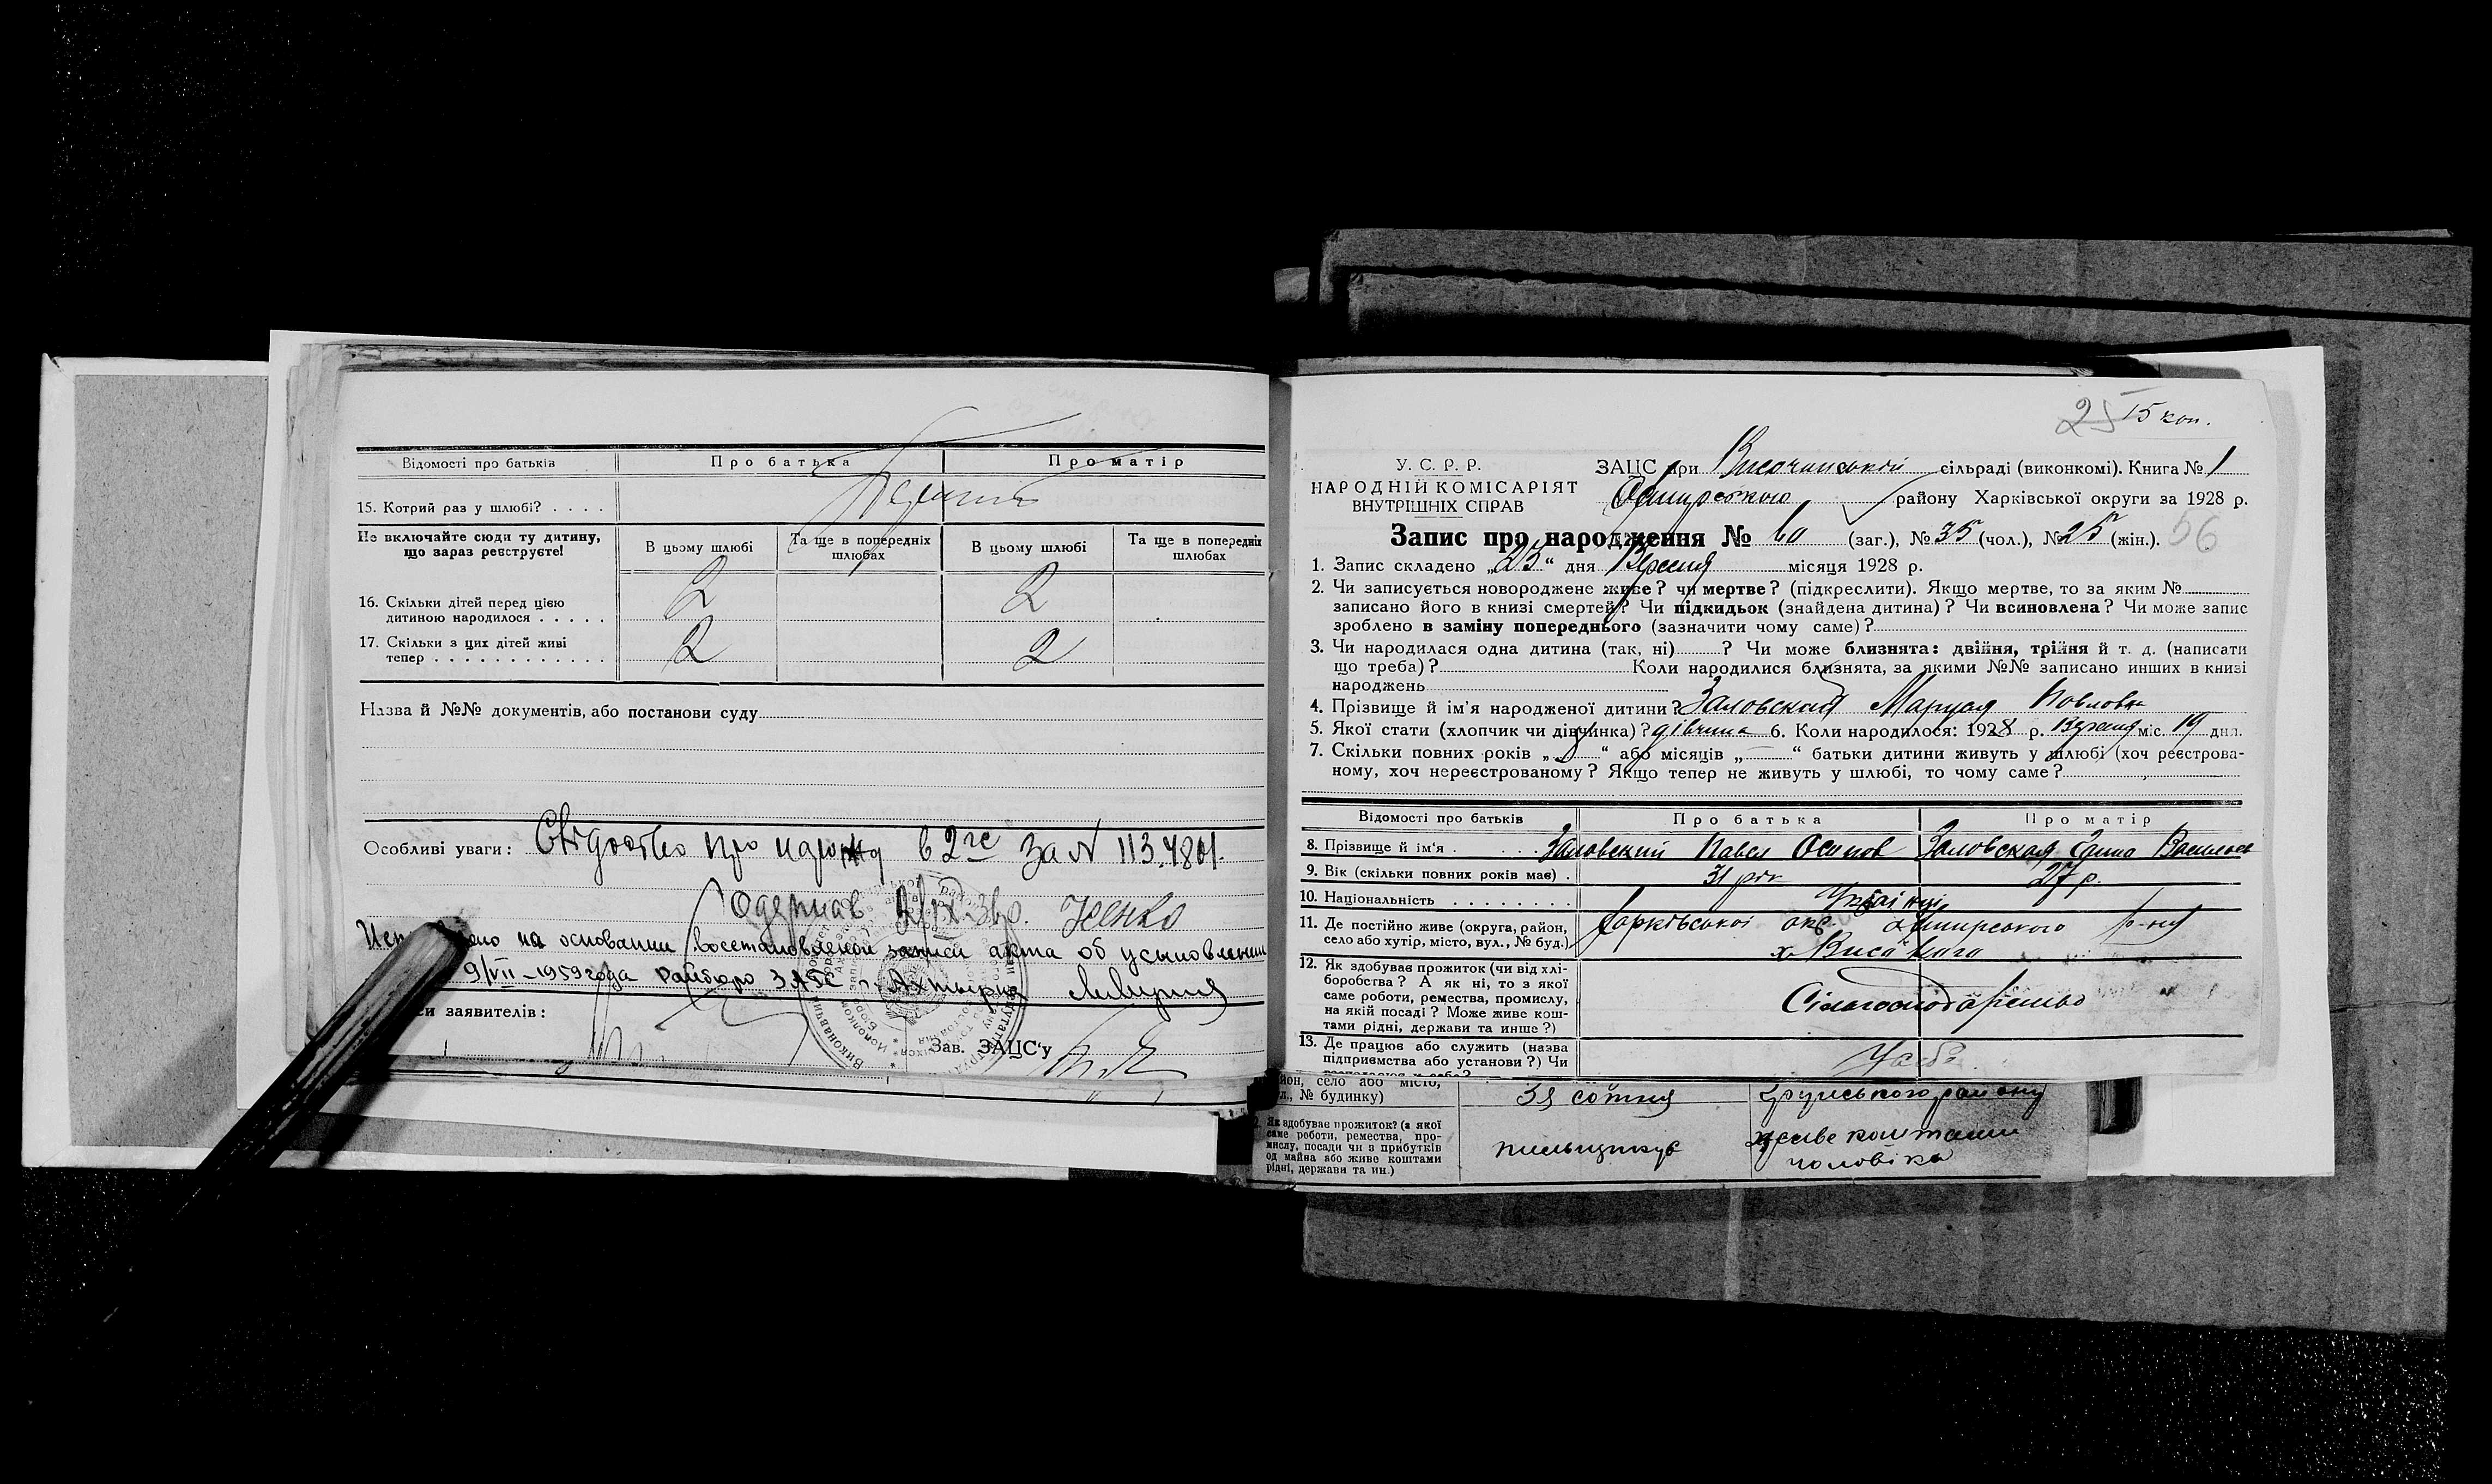 Відомості про батьків Про батька Про матір
15. Котрий раз у шлюбі? . . . .
Не включайте сюди ту дитину,
що зараз реєструєте!
В цьому шлюбі
Та ще в попередніх
шлюбах
В цьому шлюбі
Та ще в попередніх
шлюбах
16. Скільки дітей перед цією
дитиною народилося . . . . . 2 2
17. Скільки з цих дітей живі
тепер . . . . . . . . . . . . 2 2
Назва й №№ документів, або постанови суду
Особливі уваги: Свідоство про народж в 2гє за N 113.4801.
Одержав
на основании восстановленой записи акта об усыновлении
9/VII-1959 года Райбюро ЗАГС г. Ахтырка
заявителів:
Зав. ЗАЦС'у
25 15 коп.
У. С. Р. Р.
НАРОДНІЙ КОМІСАРІЯТ
ВНУТРІШНІХ СПРАВ
ЗАЦС при Височанській сільраді (виконкомі). Книга № 1
району Харківської округи за 1928 р.
Запис про народження № 60 (заг.), № 35 (чол.), № 25 (жін.). 56
1. Запис складено „25“ дня Вересня місяця 1928 р.
2. Чи записується новороджене живе? чи мертве? (підкреслити). Якщо мертве, то за яким №
записано його в книзі смертей? Чи підкидьок (знайдена дитина)? Чи всиновлена? Чи може запис
зроблено в заміну попереднього (зазначити чому саме)?
3. Чи народилася одна дитина (так, ні) ? Чи може близнята: двійня, трійня й т. д. (написати
що треба)? Коли народилися близнята, за якими №№ записано инших в книзі
народжень
4. Прізвище й ім'я народженої дитини? Заловский Маруся Павловн
5. Якої стати (хлопчик чи дівчинка)? дівчина 6. Коли народилося: 1928 р. Вересня міс. 19 дня.
7. Скільки повних років „8“ або місяців „—“ батьки дитини живуть у шлюбі (хоч реєстрова-
ному, хоч нереєстрованому? Якщо тепер не живуть у шлюбі, то чому саме?
Відомості про батьків Про батька Про матір
8. Прізвище й ім'я . . . . . Заловский Павел Осипов Заловская
9. Вік (скільки повних років має) . 31 рік 27 р.
10. Національність . . . . . . . . Українці
11. Де постійно живе (округа, район,
село або хутір, місто, вул., № буд.)
Харківської окр. р-ну
х Висо
12. Як здобуває прожиток (чи від хлі-
боробства? А як ні, то з якої
саме роботи, ремества, промислу,
на якій посаді? Може живе кош-
тами рідні, держави та инше?)
Сільгосподарство
13. Де працює або служить (назва
підприємства або установи?) Чи
село або місто,
№ будинку)
38 сотня району
Як здобуває прожиток? (з якої
саме роботи, ремества, про-
мислу, посади чи з прибутків
од майна або живе коштами
рідні, держави та ин.)
живе коштами
чоловіка